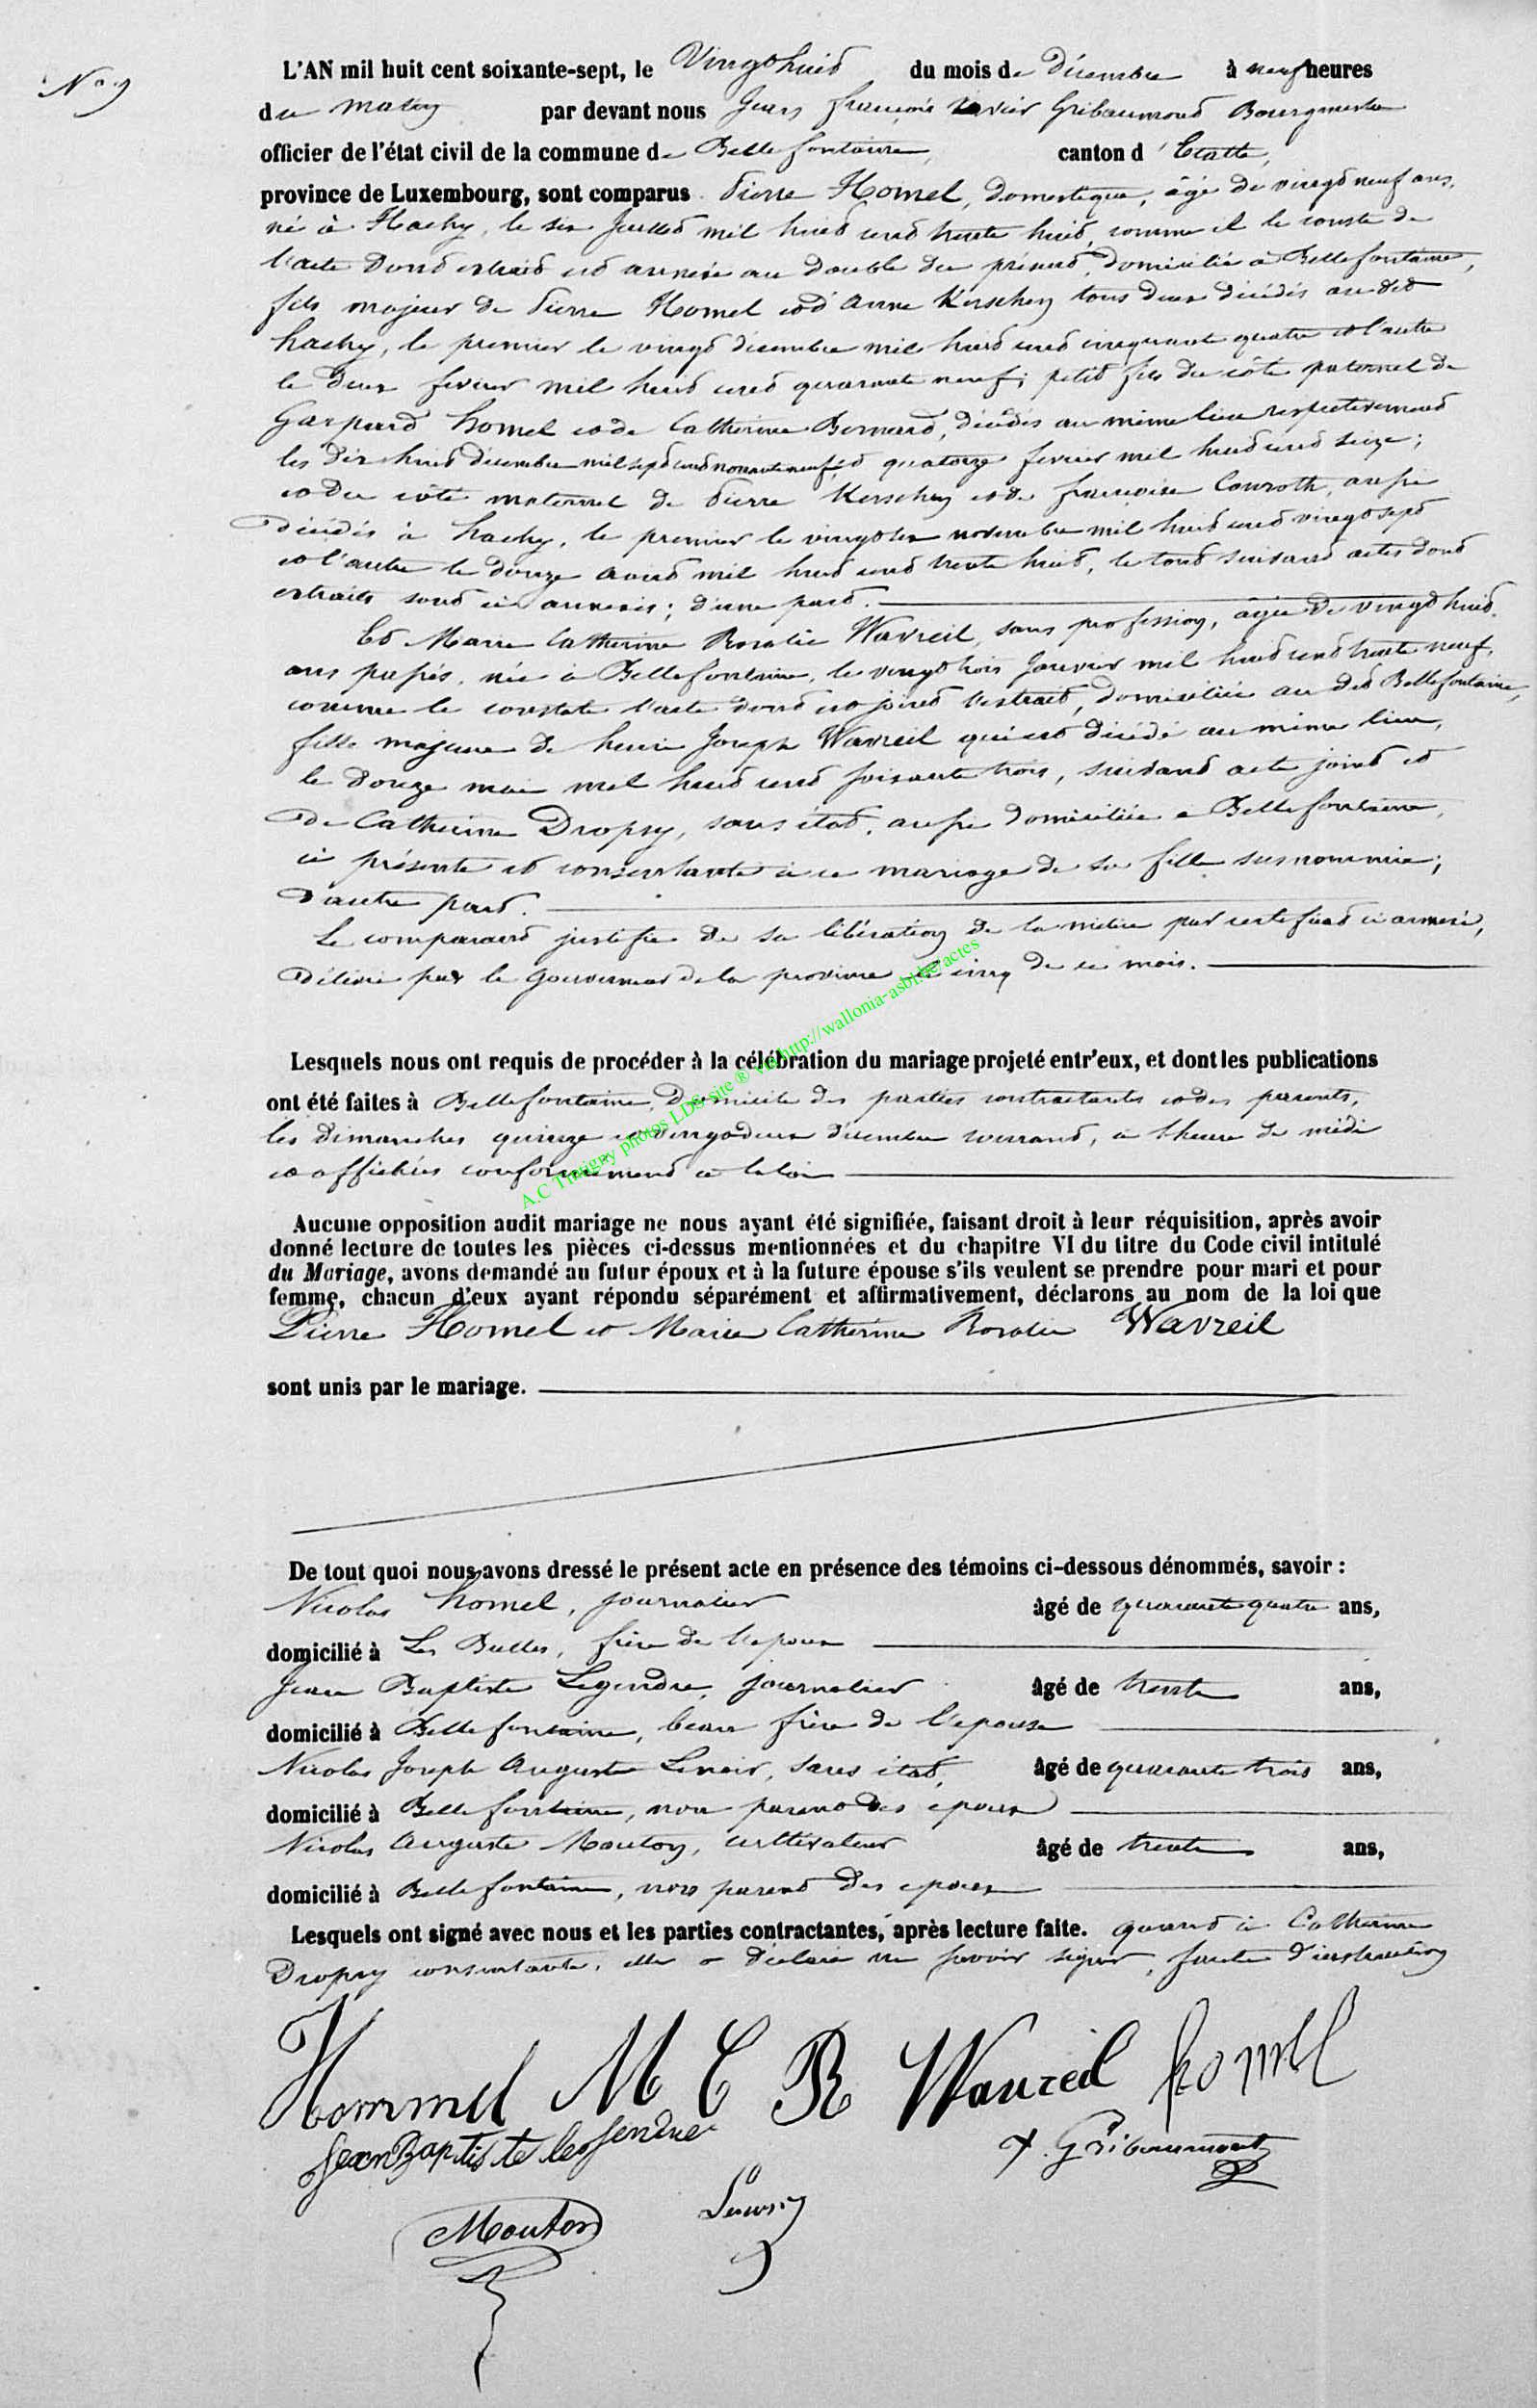 N° 9
L'AN mil huit cent soixante-sept, le Vingt huit du mois de Décembre à neuf heures
du matin par devant nous Jean françois xavier Gribaumont Bourgmestre
officier de l'état civil de la commune de Bellefontaine, canton d'Etalle,
province de Luxembourg, sont comparus Pierre Homel, domestique, âgé de vingt neuf ans,
né à Hachy, le six Juillet mil huit cent trente huit, comme il le conste de
l'acte dont extrait est annexé au double du présent, domicilié à Bellefontaine,
fils majeur de Pierre Homel et d'Anne Kerschen tous deux décédés au dit
hachy, le premier le vingt décembre mil huit cent cinquante quatre et l'autre
le deux fevrier mil huit cent quarante neuf; petit fils du côté paternel de
Gaspard homel et de Catherine Bernard, décédés au même lieu respectivement
les dix huit décembre mil sept cent nonante neuf et quatorze fevrier mil huit cent seize;
et du côté maternel de Pierre Kerschen et de françoise Conroth, aussi
décédés à hachy, le premier le vingt six novembre mil huit cent vingt sept
et l'autre le douze avril mil huit cent trente huit, le tout suivant actes dont
extraits sont ci annexés; d'une part.
Et Marie Catherine Rosalie Wavreil, sans profession, âgée de vingt huit
ans passés, née à Bellefontaine, le vingt trois Janvier mil huit cent trente neuf,
comme le constate l'acte dont est joint l'extrait, domiciliée au dit Bellefontaine,
fille majeure de henri Joseph Wavreil qui est décédé au même lieu,
le douze mai mil huit cent soixante trois, suivant acte joint et
de Catherine Dropsy, sans état, aussi domiciliée à Bellefontaine,
ci présente et consentante à ce mariage de sa fille susnommée;
d'autre part.
Le comparant justifie de sa libération de la milice par certificat ci annexé,
délivré par le Gouverneur de la province le cinq de ce mois.
Lesquels nous ont requis de procéder à la célébration du mariage projeté entr'eux, et dont les publications
ont été faites à Bellefontaine, Domicile des parties contractantes et des parents,
les dimanches quinze et vingt deux décembre courant, à l'heure de midi
et affichées conformément à la loi
A.C Tintigny photos LDS site ® via http://wallonia-asbl.be/actes
Aucune opposition audit mariage ne nous ayant été signifiée, faisant droit à leur réquisition, après avoir
donné lecture de toutes les pièces ci-dessus mentionnées et du chapitre VI du titre du Code civil intitulé
du Mariage, avons demandé au futur époux et à la future épouse s'ils veulent se prendre pour mari et pour
femme, chacun d'eux ayant répondu séparément et affirmativement, déclarons au nom de la loi que
Pierre Homel et Marie Catherine Rosalie Wavreil
sont unis par le mariage.
De tout quoi nous avons dressé le présent acte en présence des témoins ci-dessous dénommés, savoir :
Nicolas homel, journalier âgé de quarante quatre ans,
domicilié à Les Bulles, frère de l'epoux
Jean Baptiste Legendre, journalier âgé de trente ans,
domicilié à Bellefontaine, beau frère de l'epouse
Nicolas Joseph Auguste Lenoir, sans état, âgé de quarante trois ans,
domicilié à Bellefontaine, non parent des epoux
Nicolas Auguste Mouton, cultivateur âgé de trente ans,
domicilié à Bellefontaine, non parent des epoux
Lesquels ont signé avec nous et les parties contractantes, après lecture faite. quant à Catherine
Dropsy consentante, elle a déclaré ne savoir signer, faute d'instruction
Hommel M C R Wavreil homel
Jean Baptiste legendre X. Gribaumont
Mouton Lenoir